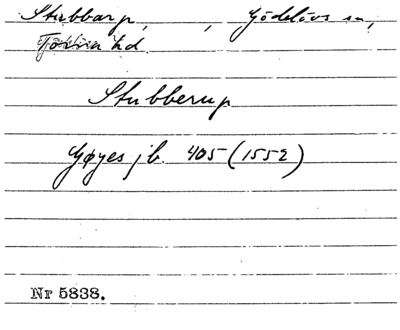 Stubbarp, , Gödelövs sn,
Torna hd.
Stubberup
Gøyes jb. 405 (1552)
Nr 5838.